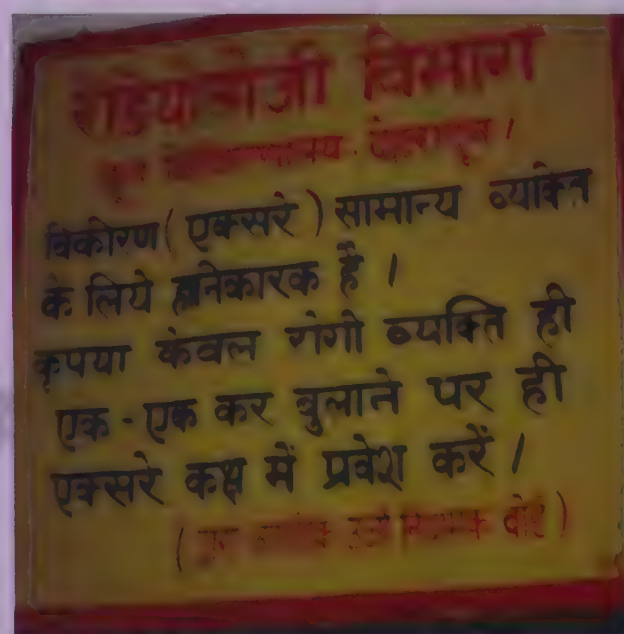 रेडियोलोजी विभाग
दून देहरादून।
विकीरण ( एक्सरे ) सामान्य व्यक्ति
के लिये हानिकारक है ।
कृपया केवल रोगी व्यक्ति ही
एक - एक कर बुलाने पर ही
एक्सरे कक्ष में प्रवेश करें ।